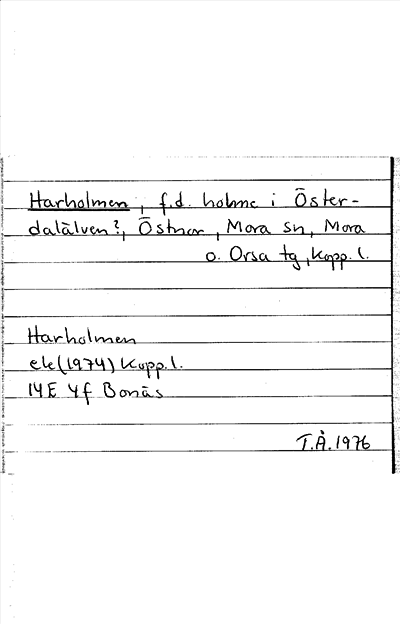 Harholmen, f.d. holme i Öster-
dalälven?, Östnor, Mora sn, Mora
o. Orsa tg, Kopp. l.
Harholmen
ek (1974) Kopp. l.
14E 4f Bonäs
T.Å. 1976